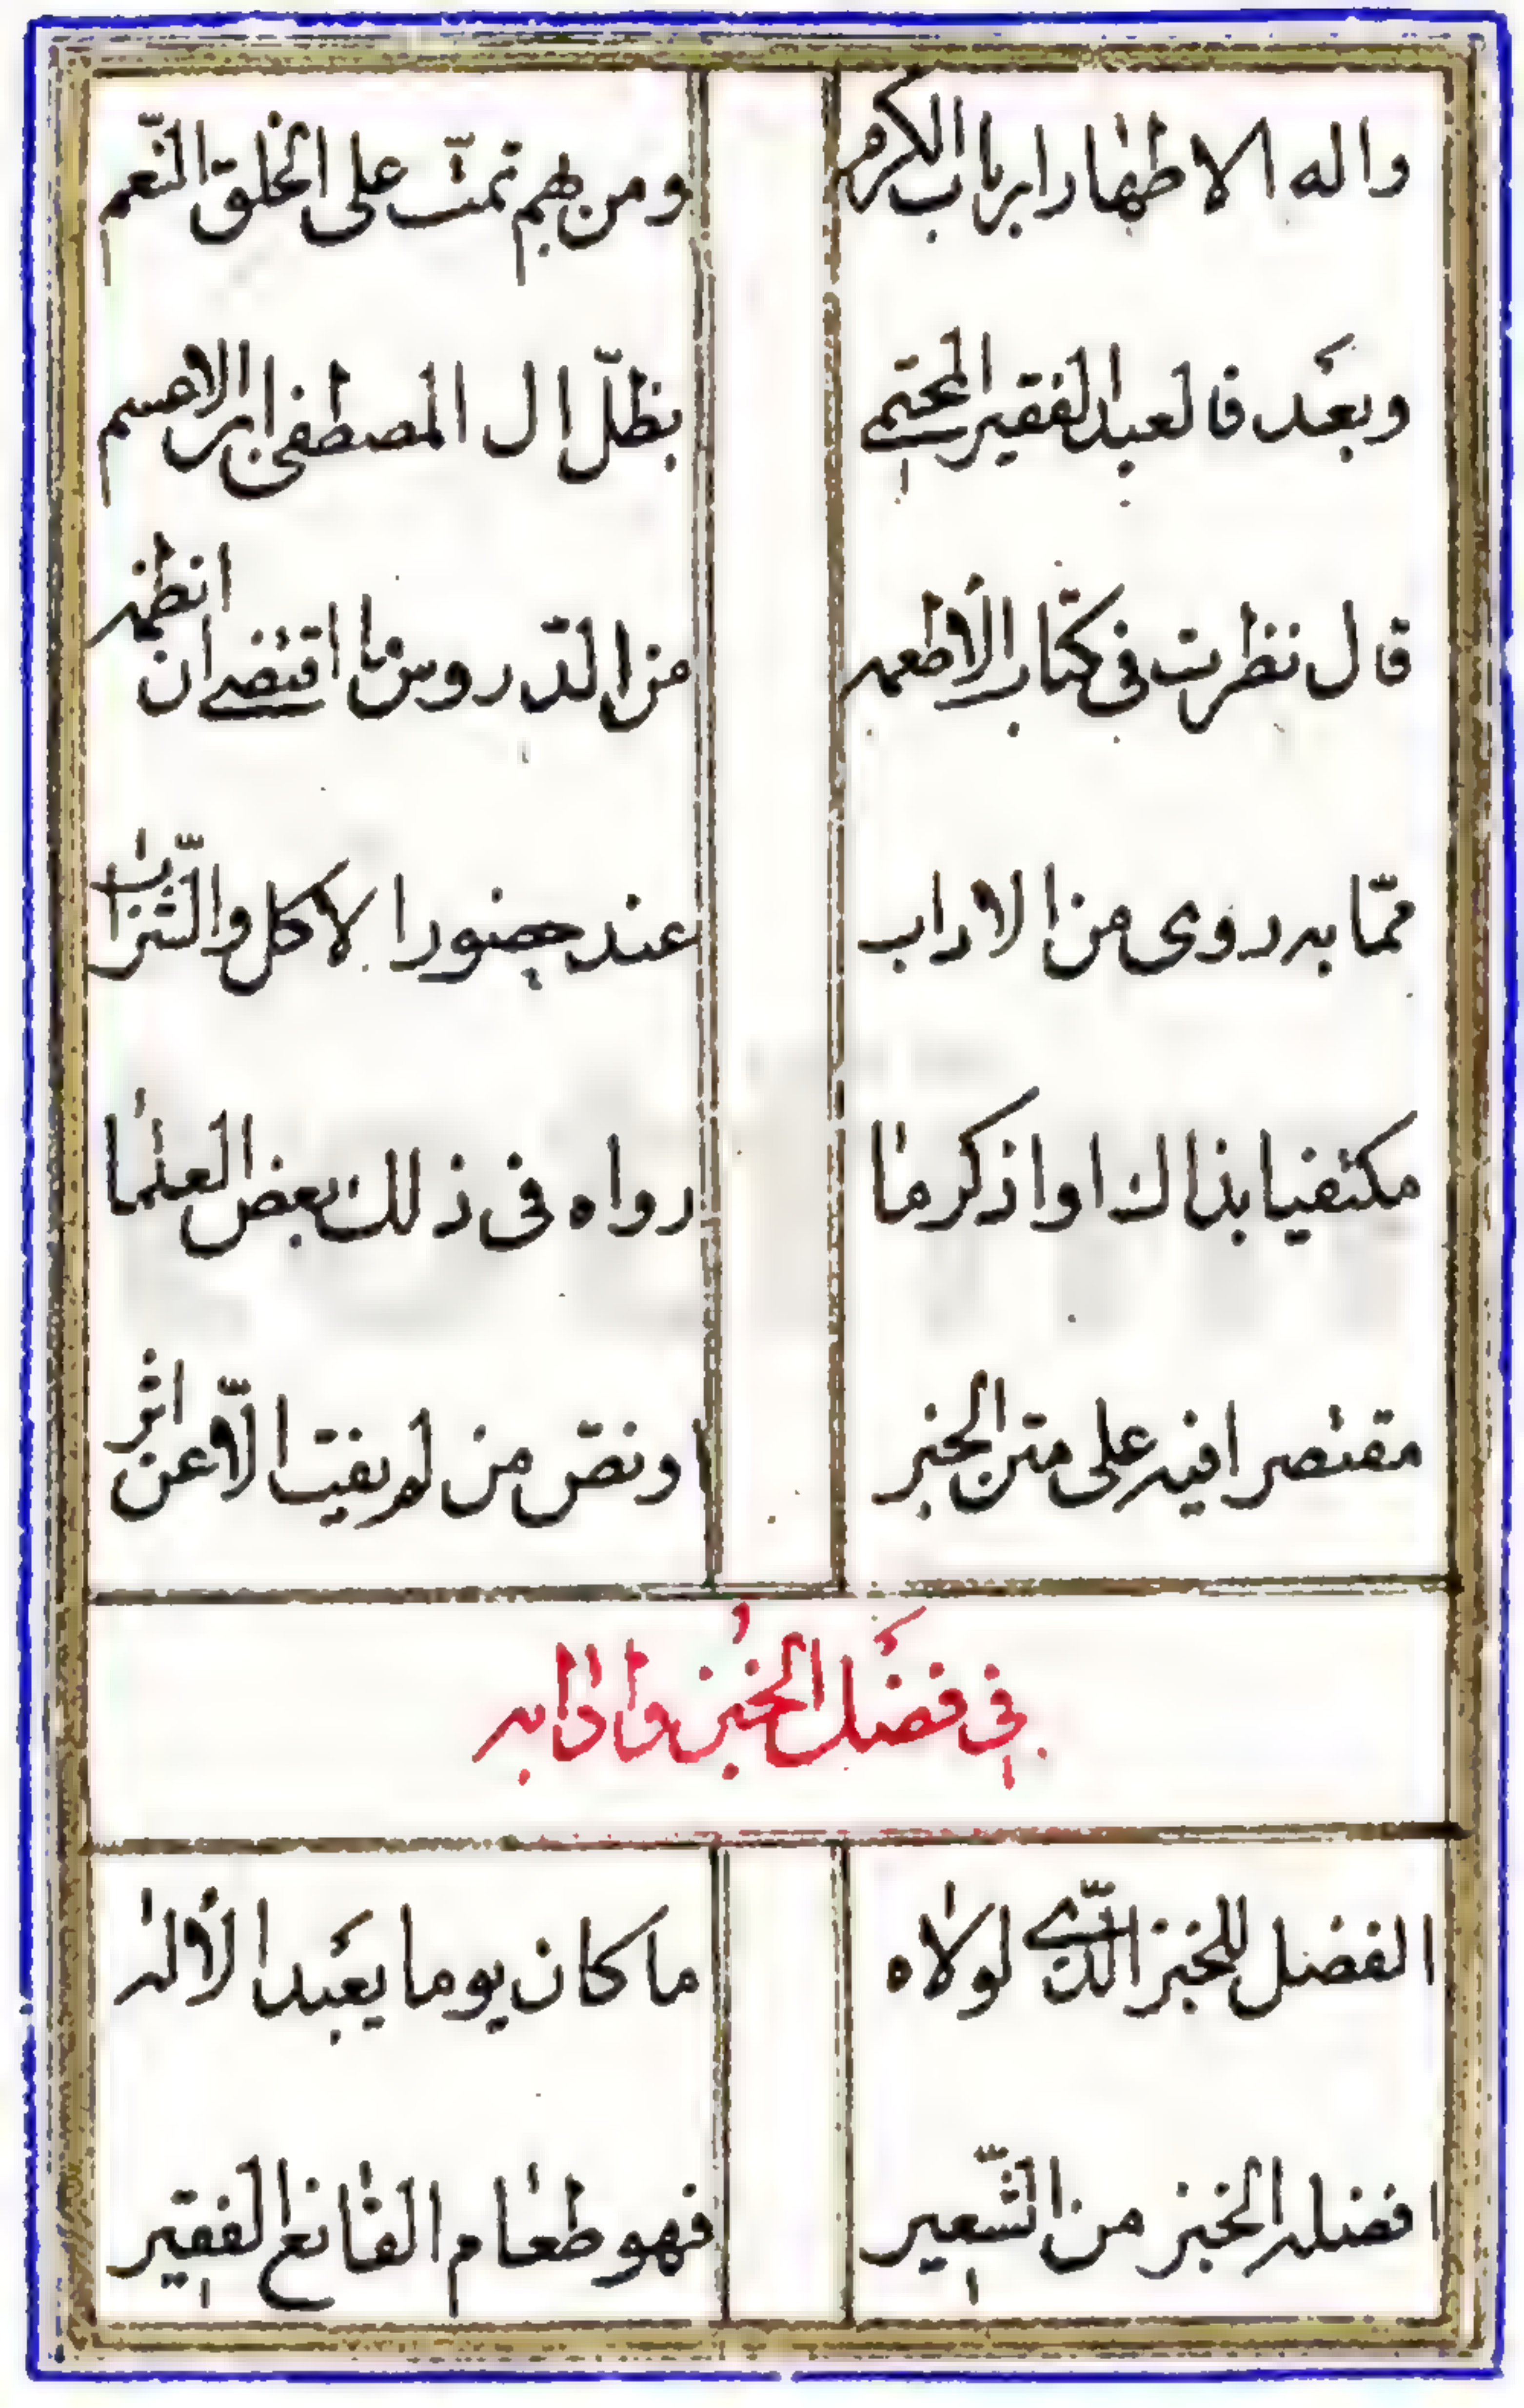 واله الاطهار ارباب الكرم ومن بهم تمت على الخلق النعم
وبعد فالعبد الفقير المحتمي بظل ال المصطفى ابراهيم
قال نظرت في كتاب الاطعمه من الدروس ما اقتضى ان انظمه
مما به روى من الاداب عند حضور الاكل والشراب
مكتفيا بذاك او اذكر ما رواه في ذلك بعض العلما
مقتصرا فيه على متن الخبر او نص من لم يفت الا عن اثر
في فضل الخبز وادابه
الفضل للخبز الذي لولاه ما كان يوما يعبد الاله
افضله الخبز من الشعير فهو طعام القانع الفقير